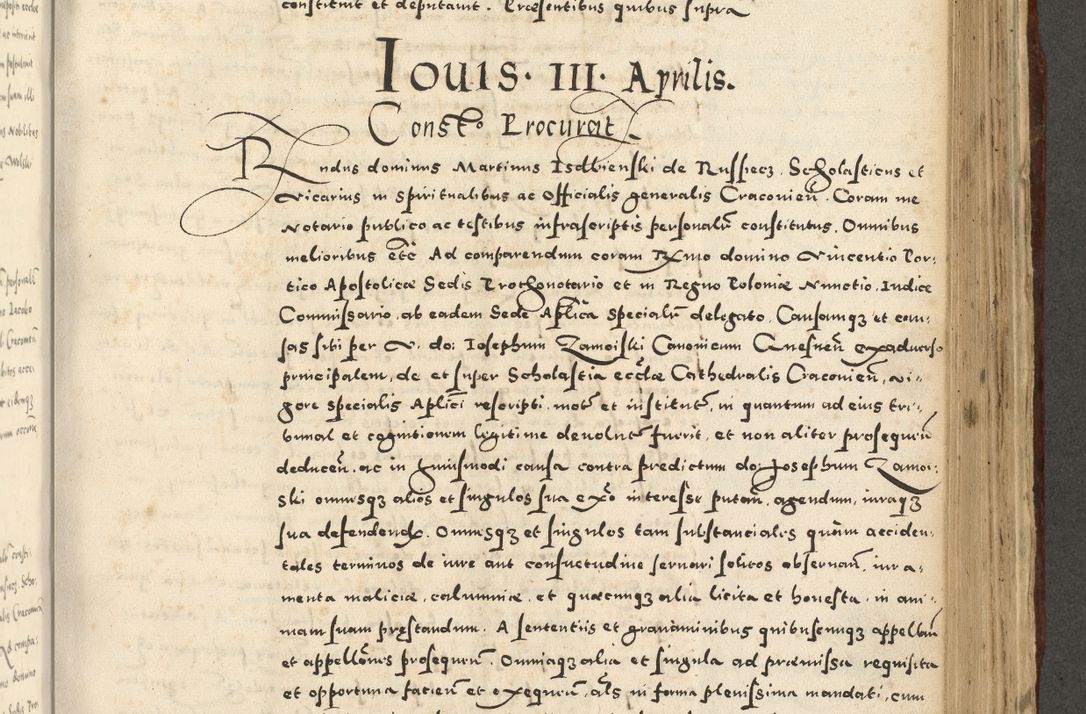 constituit et deputauit. Præsentibus quibus supra
Iouis. III. Aprilis.
Const.o Procurat.
Rndus dominus Martinus Isdbienski de Russiecz. Scholasticus et
Vicarius in Spiritualibus ac Officialis generalis Cracovien̄. Coram me
Notario publico ac testibus infrascriptis personalr̄ constitutus. Omnibus
melioribus etc̄ Ad comparendum coram Rmo domino Vincentio Por-
tico Apostolicæ Sedis Prothonotario et in Regno Poloniæ Nunctio. Iudice
Commissario. ab eadem Sede Aplica specialr̄ delegato. Causamqꝫ et cau-
sas sibi per V. do: Iosephum Zamoiski Canonicum Gnesnen̄ ex aduerso
principalem, de et super Scholastria eccłæ Cathedralis Cracovien̄, vi-
gore specialis Aplici rescripti. mot. et institut. in quantum ad eius tri-
bunal et cognitionem legitime deuolut. fuerit. et non aliter prosequen̄
deducen̄. ac in huiusmodi causa contra predictum do: Iosephum Zamoi-
ski omnesqꝫ alios et singulos sua ex.o interesse putan̄. agendum, iuraqꝫ
sua defendendo. Omnesqꝫ et singulos tam substanciales quàm acciden-
tales terminos de iure aut consuetudine seruari solitos obseruan̄. iura-
menta maliciæ. calumniæ. et quæcunqꝫ alia licita et honesta. in ani-
mam suam pręstandum. A sententiis et grauaminibus quibuscunqꝫ appellan̄
et appellōnes prosequen̄. Omniaqꝫ alia et singula ad præmissa requisita
et opportuna facien̄ et exequen̄. als in forma plenissima mandati. cum